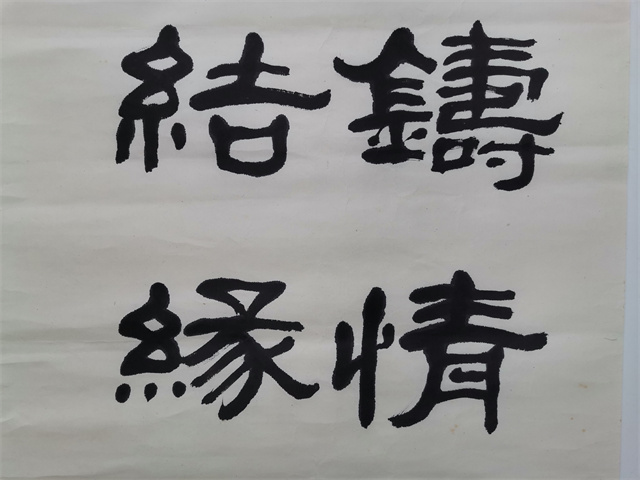 鑄情
結緣